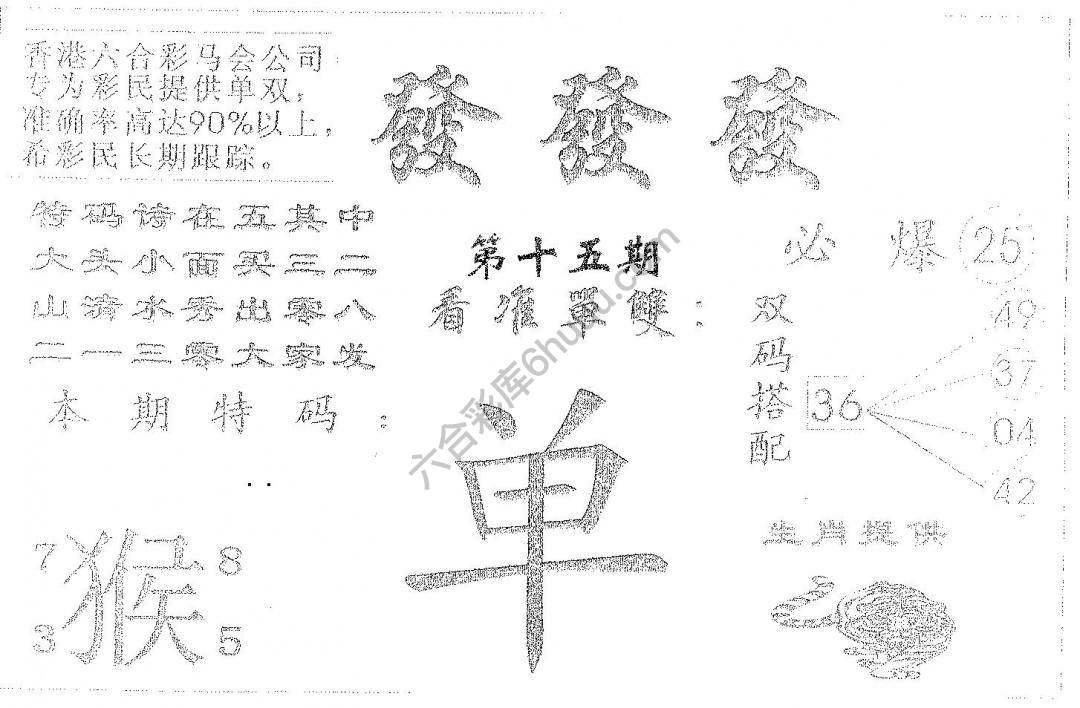 香港六合彩马会公司
专为彩民提供单双，
准确率高达90%以上，
希彩民长期跟踪。
發發發
特码诗在五其中
大头小面买三二
山清水秀出零八
二一三零大家发
第十五期
看准單雙：
单
必爆25
双码搭配
36
49
37
04
42
本期特码：
7猴8
3 5
生肖提供
六合彩库6huqu.com